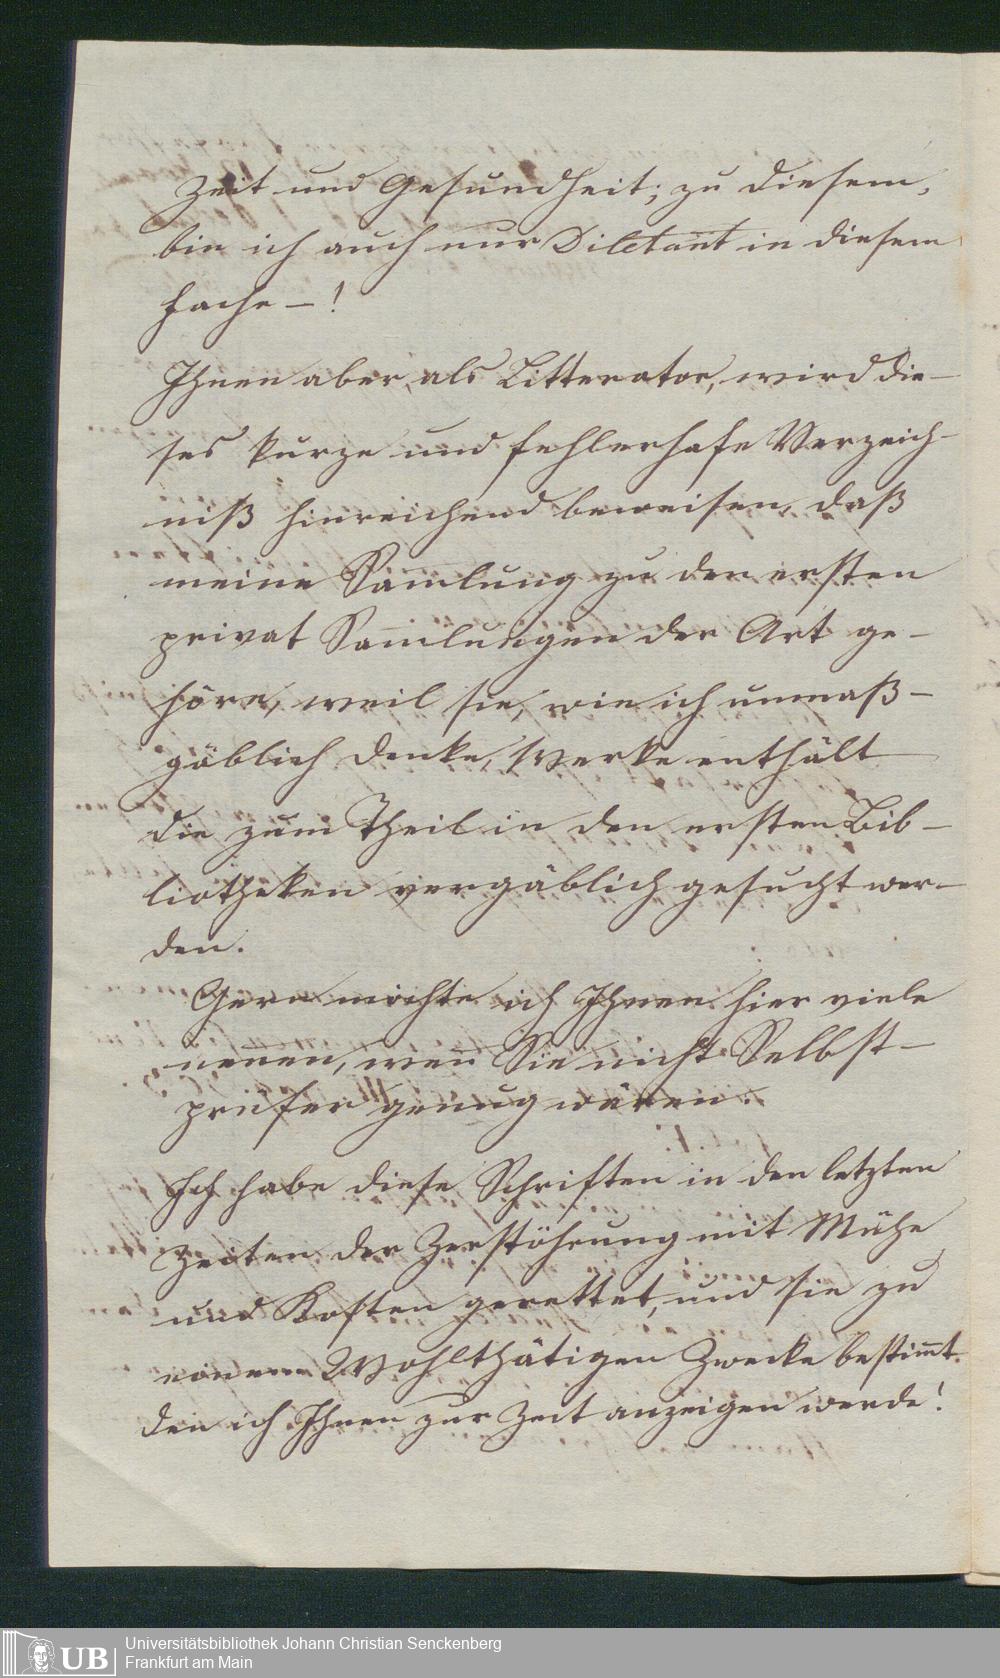 Zeit und Gesundheit; zu diesem,
bin ich auch nur Diletant in diesem
Fache – !
Ihnen aber, als Litterator, wird die-
ses kurze und fehlerhafe Verzeich-
niß hinreichend beweisen, daß
meine Sam̄lung zu den ersten
privat Sam̄lungen der Art ge-
höre, weil sie, wie ich unmaß-
gäblich denke, Werke enthält
die zum Theil in den ersten Bib-
liotheken vergäblich gesucht wer-
den.
Gern möchte ich Ihnen hier viele
nen̄en, wen̄ Sie nicht Selbst-
prüfer genug wären.
Ich habe diese Schriften in den letzten
Zeiten der Zerstöhrung mit Mühe
und Kosten gerettet, und sie zu
einem Wohlthätigen Zwecke bestim̄t.
den ich Ihnen zur Zeit anzeigen werde!
UB
Universitätsbibliothek Johann Christian Senckenberg
Frankfurt am Main